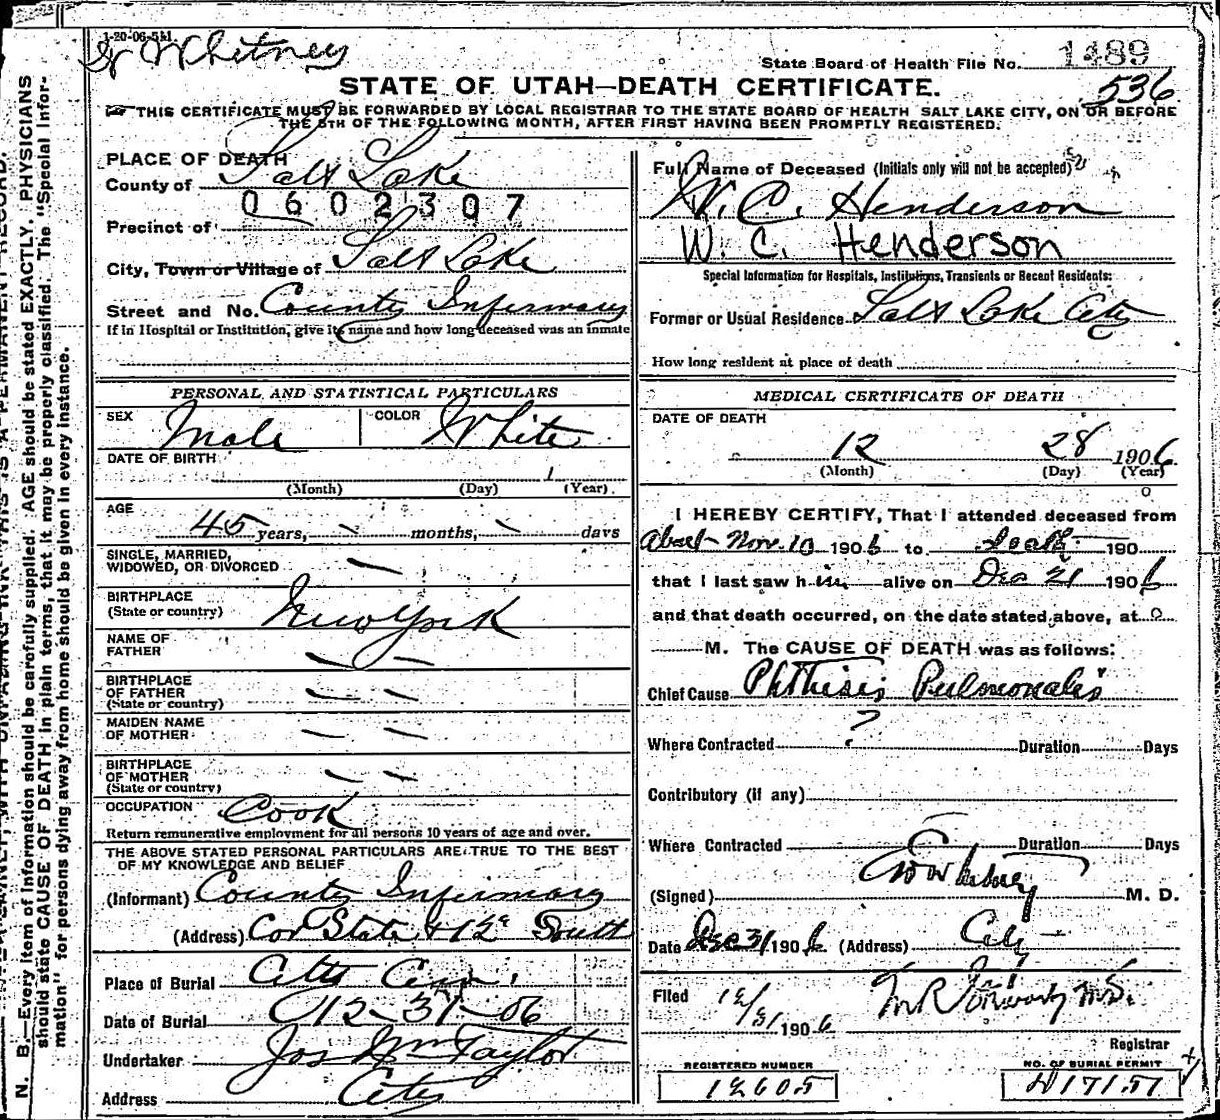 1-20-06-5M.
Dr Whitney
State Board of Health File No. 1489
STATE OF UTAH—DEATH CERTIFICATE. 536
THIS CERTIFICATE MUST BE FORWARDED BY LOCAL REGISTRAR TO THE STATE BOARD OF HEALTH SALT LAKE CITY, ON OR BEFORE
THE 5TH OF THE FOLLOWING MONTH, AFTER FIRST HAVING BEEN PROMPTLY REGISTERED.
PLACE OF DEATH
County of Salt Lake
0602307
Precinct of
City, Town or Village of Salt Lake
Street and No. County Infirmary
If in Hospital or Institution, give its name and how long deceased was an inmate
PERSONAL AND STATISTICAL PARTICULARS
SEX Male COLOR White
DATE OF BIRTH
1
(Month) (Day) (Year)
AGE
45 years, - months, - days
SINGLE, MARRIED,
WIDOWED, OR DIVORCED —
BIRTHPLACE
(State or country) New York
NAME OF
FATHER — —
BIRTHPLACE
OF FATHER — —
(State or country)
MAIDEN NAME
OF MOTHER — —
BIRTHPLACE
OF MOTHER — —
(State or country)
OCCUPATION Cook
Return remunerative employment for all persons 10 years of age and over.
THE ABOVE STATED PERSONAL PARTICULARS ARE TRUE TO THE BEST
OF MY KNOWLEDGE AND BELIEF
(Informant) County Infirmary
(Address) Cor State & 12th South
Place of Burial City Cem.
Date of Burial 12-31-06
Undertaker Jos Wm Taylor
Address City
Full Name of Deceased (Initials only will not be accepted)
W. C. Henderson
W. C. Henderson
Special Information for Hospitals, Institutions, Transients or Recent Residents:
Former or Usual Residence Salt Lake City
How long resident at place of death
MEDICAL CERTIFICATE OF DEATH
DATE OF DEATH
12 28 1906
(Month) (Day) (Year)
I HEREBY CERTIFY, That I attended deceased from
About Nov. 10 1906 to death 190
that I last saw him alive on Dec 21 1906
and that death occurred, on the date stated above, at
M. The CAUSE OF DEATH was as follows:
Chief Cause Phthisis Pulmonales
Where Contracted ? Duration Days
Contributory (if any)
Where Contracted Duration Days
(Signed) Whitney M. D.
Date Dec 31 1906 (Address) City
Filed 12/31 1906 M.D.
Registrar
REGISTERED NUMBER
12605
NO. OF BURIAL PERMIT
17151
N. B.—Every item of Information should be carefully supplied. AGE should be stated EXACTLY. PHYSICIANS
should state CAUSE OF DEATH in plain terms, that it may be properly classified. The "Special Infor-
mation" for persons dying away from home should be given in every instance.